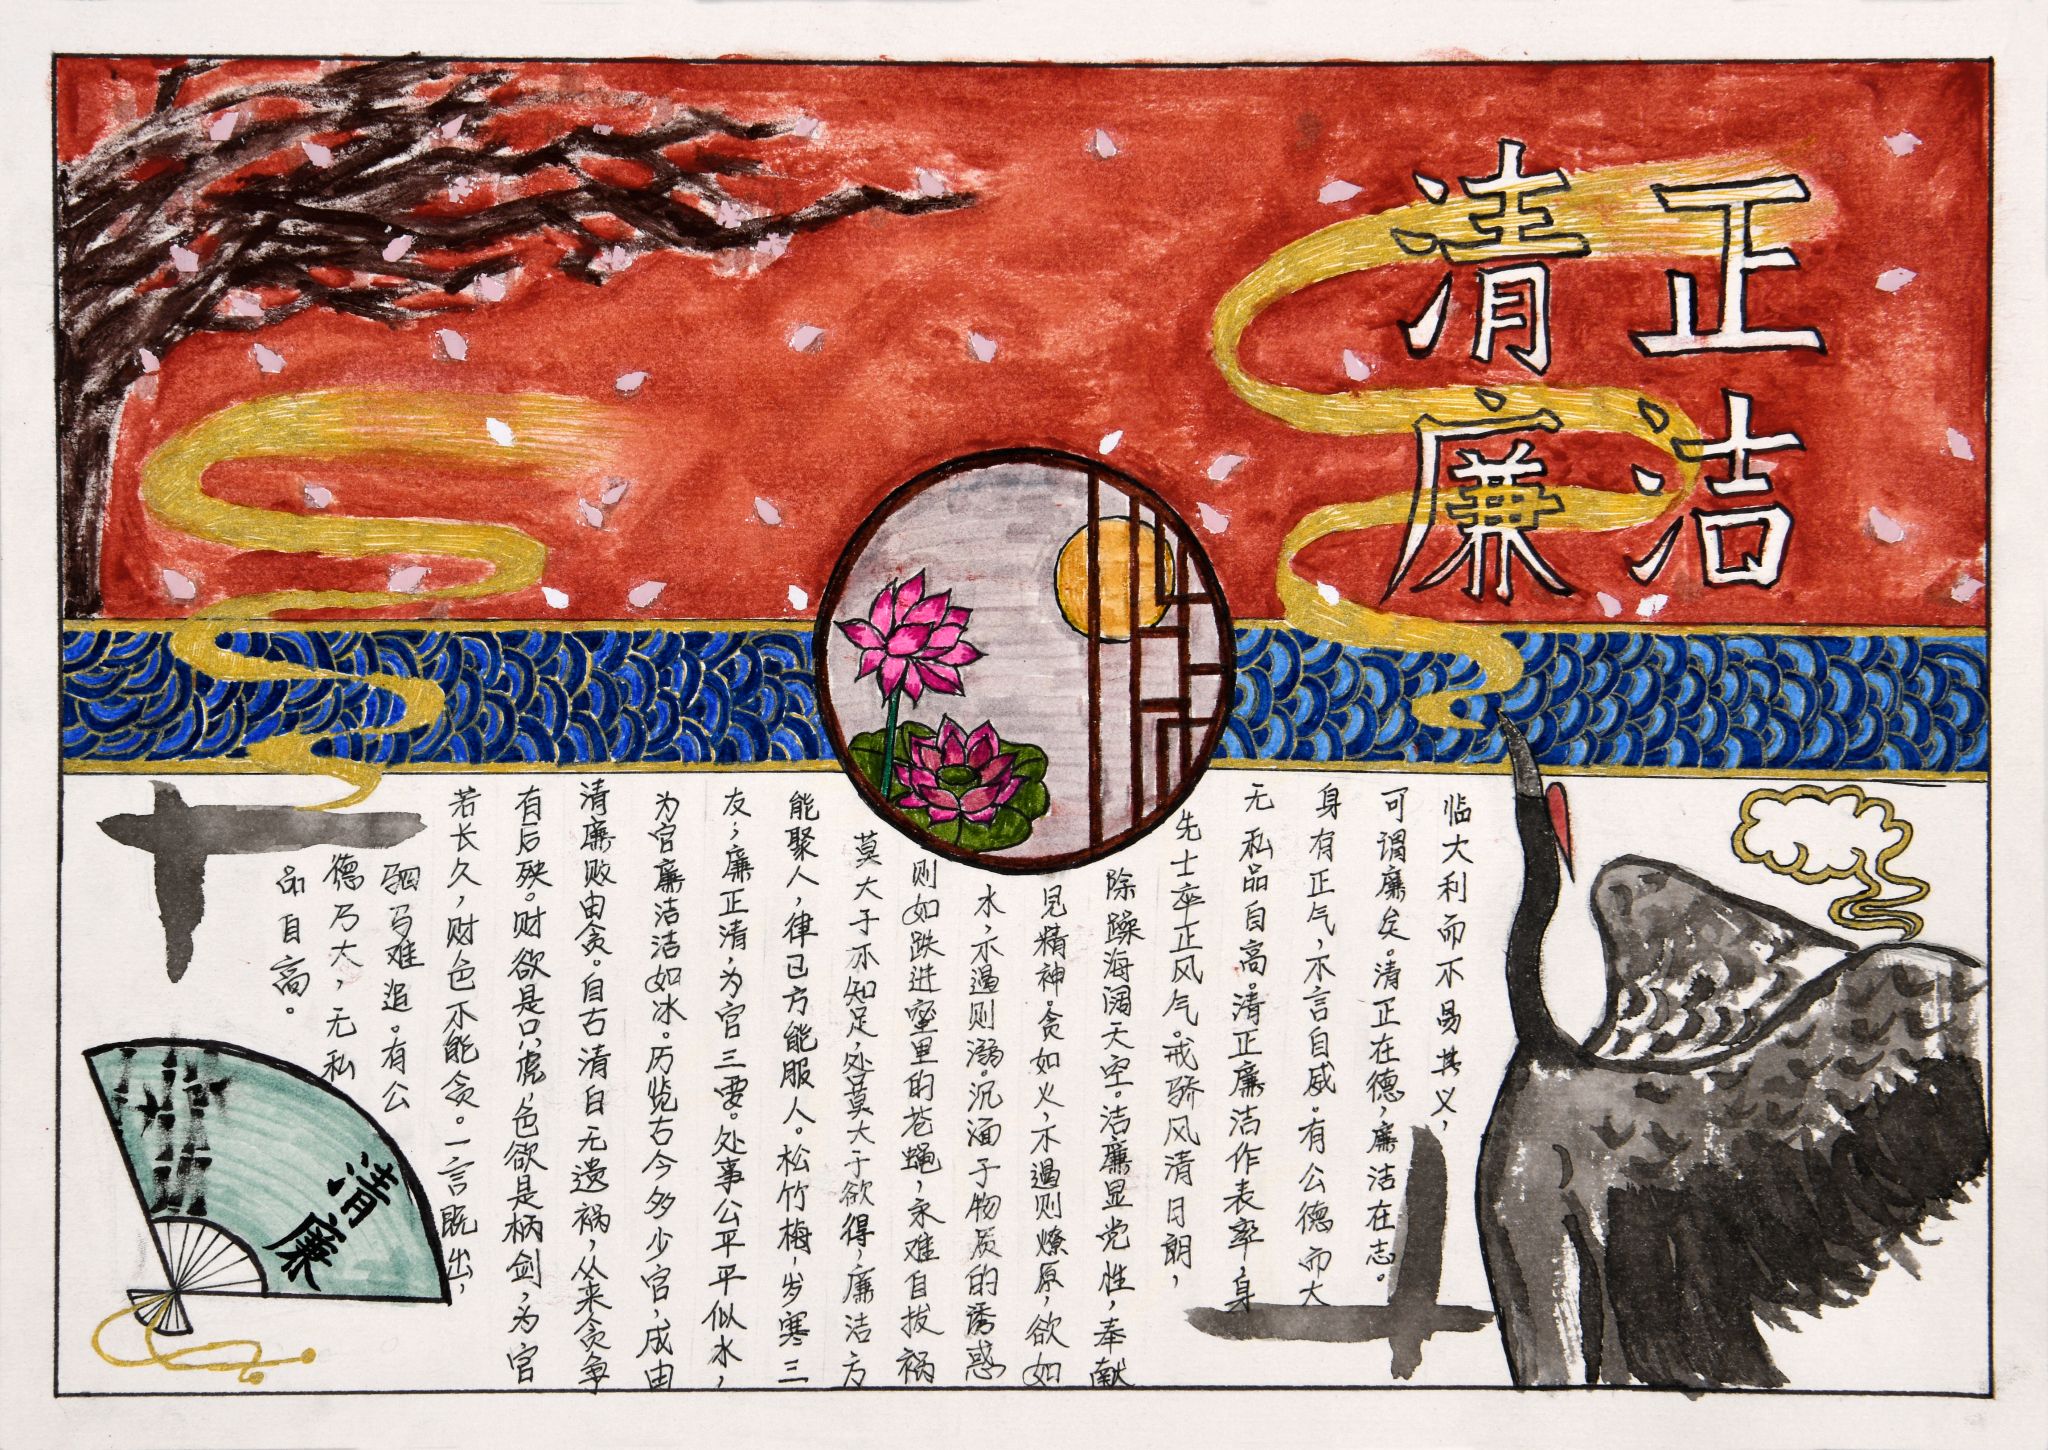 正洁
清廉
临大利而不易其义，
可谓廉矣。清正在德，廉洁在志。
身有正气，不言自威。有公德而大
无私品自高。清正廉洁作表率，身
先士卒正风气。戒骄风清日朗，
除躁海阔天空。洁廉显党性，奉献
见精神。贪如火，不遏则燎原，欲如
水，不遏则溺。沉湎于物质的诱惑
则如跌进蜜里的苍蝇，永难自拔祸
莫大于不知足，处莫大于欲得，廉洁方
能聚人，律己方能服人。松竹梅，岁寒三
友，廉正清，为官三要。处事公平平似水，
为官廉洁洁如冰。历览古今多少官，成由
清廉败由贪。自古清白无遗祸，从来贪争
有后殃。财欲是只虎，色欲是柄剑，为官
若长久，财色不能贪。一言既出，
驷马难追。有公
德乃大，无私
品自高。
清廉